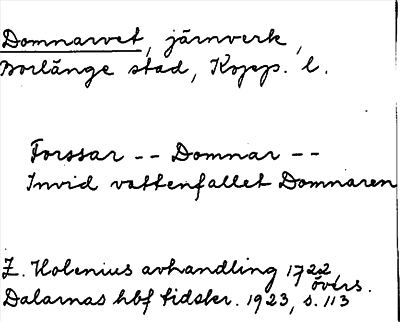 Domnarvet, järnverk,
Borlänge stad, Kopp. l.
Forssar -- Domnar --
Invid vattenfallet Domnaren
Z. Holenius avhandling 1722, övers.
Dalarnas hbf tidskr. 1923, s. 113